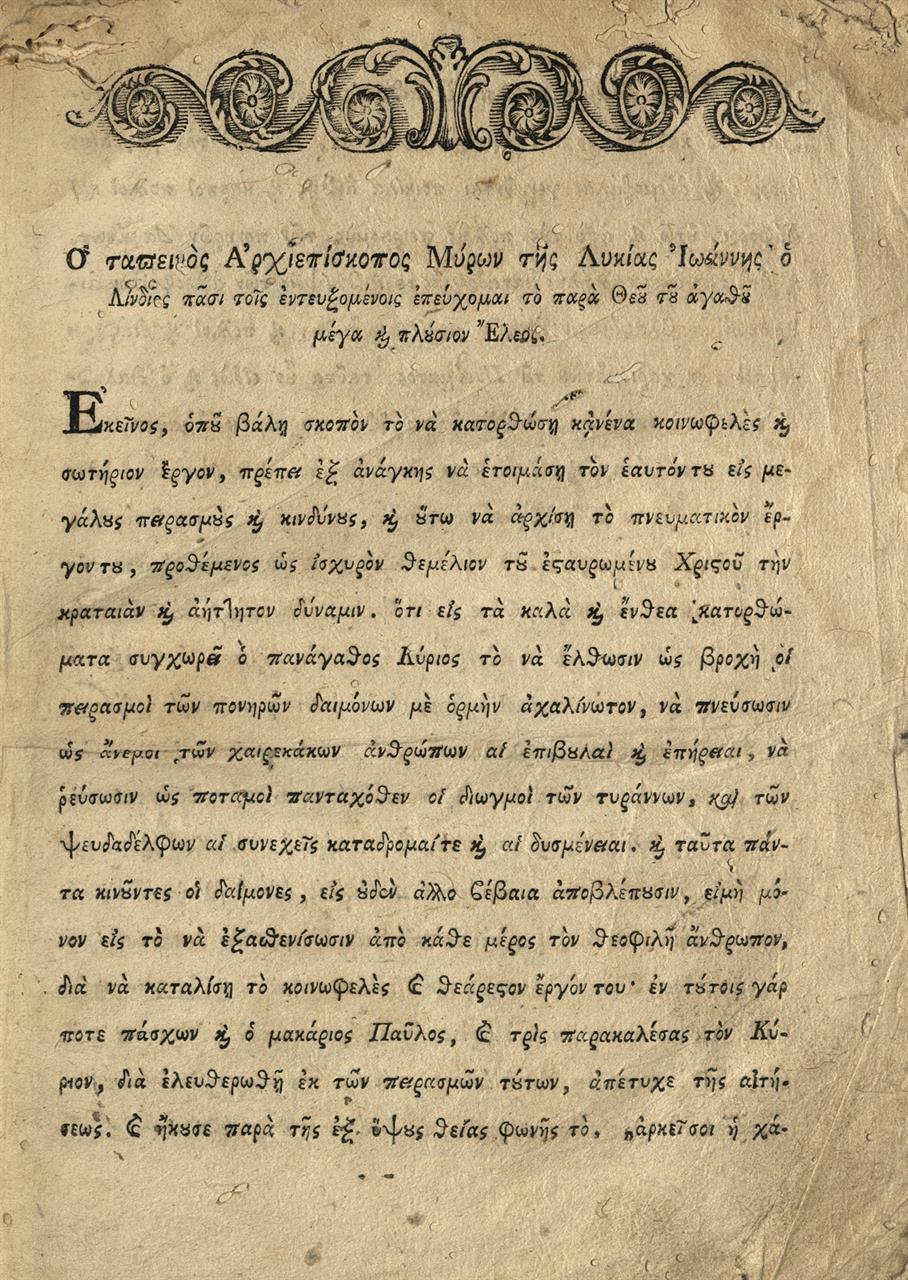 Ὁ ταπεινὸς Ἀρχιεπίσκοπος Μύρων τῆς Λυκίας Ἰωάννης ὁ
Λίνδιος πᾶσι τοῖς ἐντευξομένοις ἐπεύχομαι τὸ παρὰ Θεοῦ τοῦ ἀγαθοῦ
μέγα ϗ πλούσιον Ἔλεος.
Ἐκεῖνος, ὁποῦ βάλῃ σκοπὸν τὸ νὰ κατορθώσῃ κᾀνένα κοινωφελὲς ϗ
σωτήριον ἔργον, πρέπει ἐξ ἀνάγκης νὰ ἑτοιμάσῃ τὸν ἑαυτόντου εἰς με-
γάλους πειρασμοὺς ϗ κινδύνους, ϗ οὕτω νὰ ἀρχίσῃ τὸ πνευματικὸν ἔρ-
γοντου, προθέμενος ὡς ἰσχυρὸν θεμέλιον τοῦ ἐσταυρωμένου Χριστοῦ τὴν
κραταιὰν ϗ ἀήττητον δύναμιν. ὅτι εἰς τὰ καλὰ ϗ ἔνθεα κατορθώ-
ματα συγχωρεῖ ὁ πανάγαθος Κύριος τὸ νὰ ἔλθωσιν ὡς βροχὴ οἱ
πειρασμοὶ τῶν πονηρῶν δαιμόνων μὲ ὁρμὴν ἀχαλίνωτον, νὰ πνεύσωσιν
ὡς ἄνεμοι τῶν χαιρεκάκων ἀνθρώπων αἱ ἐπιβουλαὶ ϗ ἐπήρειαι, νὰ
ῥεύσωσιν ὡς ποταμοὶ πανταχόθεν οἱ διωγμοὶ τῶν τυράννων, καὶ τῶν
ψευδαδέλφων αἱ συνεχεῖς καταδρομαίτε ϗ αἱ δυσμένειαι. ϗ ταῦτα πάν-
τα κινοῦντες οἱ δαίμονες, εἰς οὐδὲν ἄλλο βέβαια ἀποβλέπουσιν, εἰμὴ μό-
νον εἰς τὸ νὰ ἐξασθενίσωσιν ἀπὸ κάθε μέρος τὸν θεοφιλῆ ἄνθρωπον,
διὰ νὰ καταλίσῃ τὸ κοινωφελὲς ϗ θεάρεστον ἔργόν του· ἐν τούτοις γάρ
ποτε πάσχων ϗ ὁ μακάριος Παῦλος, ϗ τρὶς παρακαλέσας τὸν Κύ-
ριον, διὰ ἐλευθερωθῇ ἐκ τῶν πειρασμῶν τούτων, ἀπέτυχε τῆς αἰτή-
σεως. ϗ ἤκουσε παρὰ τῆς ἐξ ὕψους θείας φωνῆς τὸ, ἀρκεῖσοι ἡ χά-